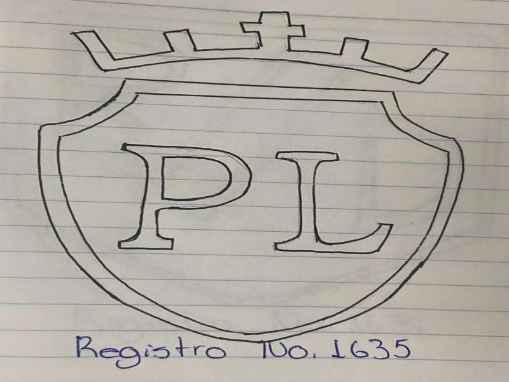 PL
Registro No. 1635